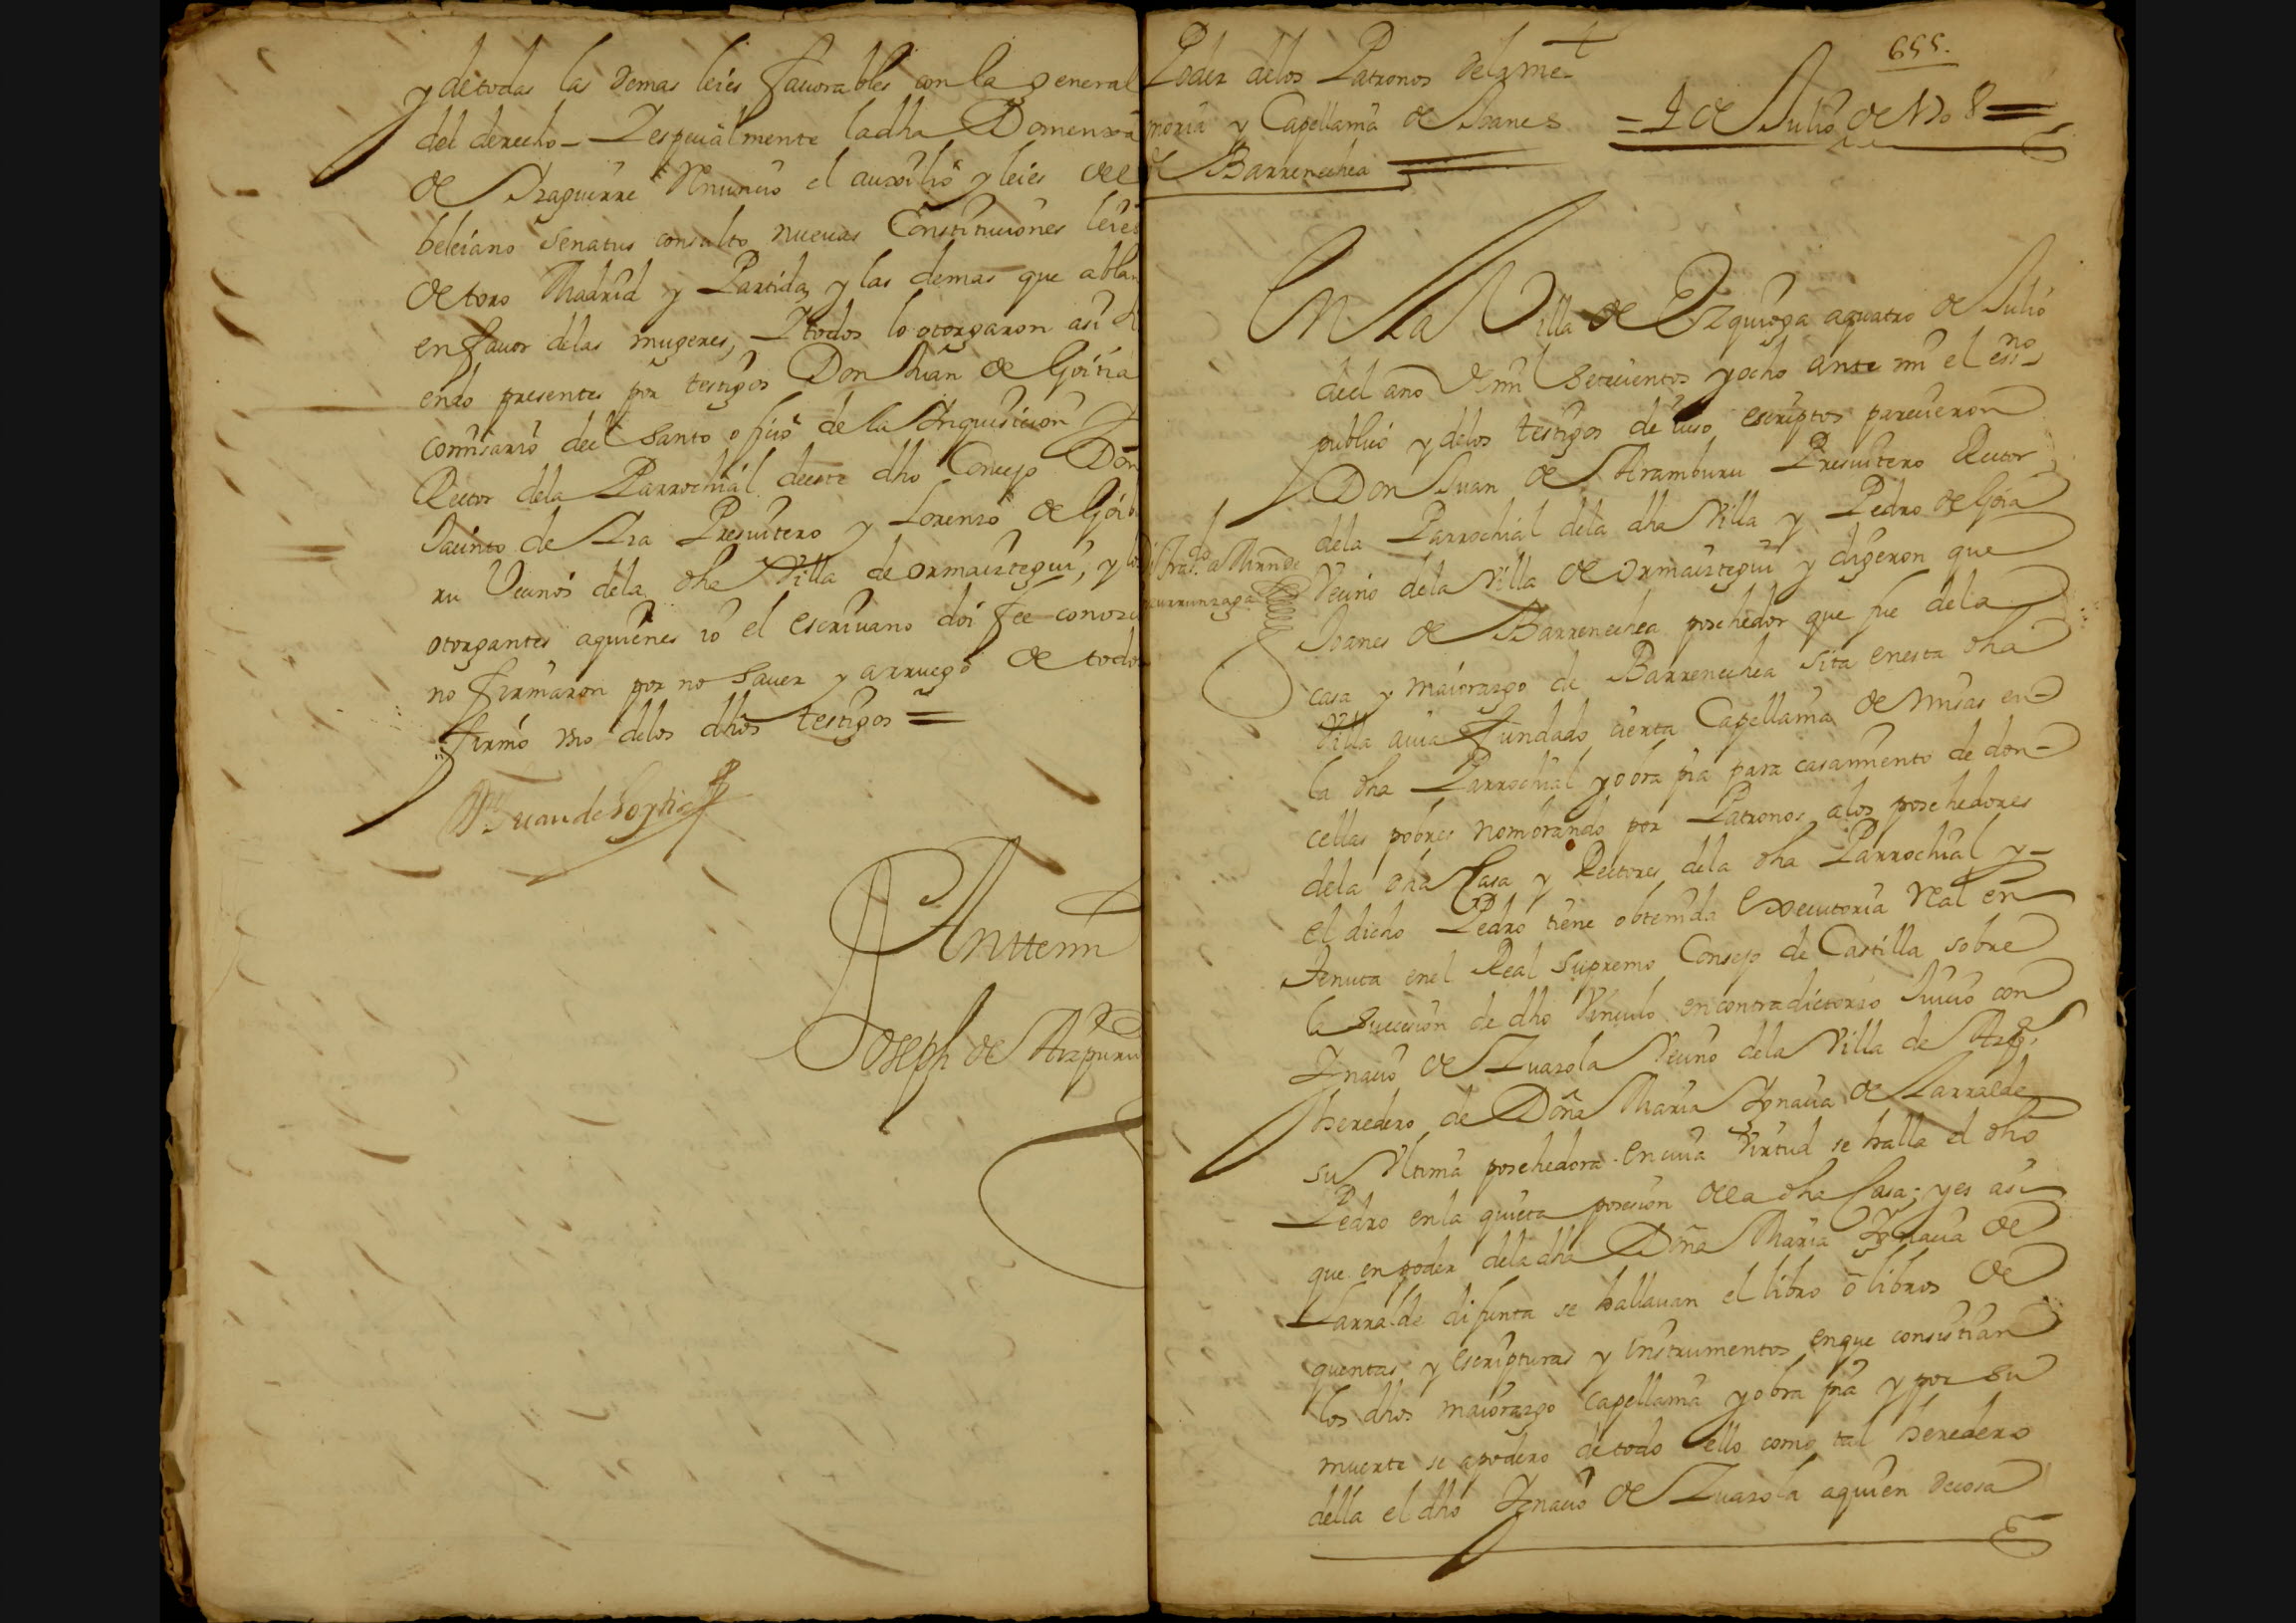 y de todas las demas leies fauorables con la general
del derecho – Y espeçialmente la dha Domenxa
de Yraguirre Renuncio el auxilio y leies del
beleiano senatus consulto nueuas Constituçiones leies
de toro Madrid y Partida, y las demas que ablan
en fauor delas mugeres, – Y todos lo otorgaron asi si
endo presentes por testigos Don Juan de Goitia
comisario del Santo ofiçio de la Inquisiçion
Rector dela Parrochial deeste dho Conçejo Don
Jaçinto de Presuitero y Lorenzo de Goib
ru Veçinos dela dha Villa de ormaiztegui, y los
otorgantes aquienes io el escriuano doi fee conozco
no firmaron por no sauer y arruego de todos
firmó vno delos dhos testigos =
Juan de Goytia
Antte mi
Joseph de Aizpuru
Poder delos Patronos dela me–
moria y Capellania de Joanes
de Barrenechea
655.
= 4 de Julio de 1708 =
En La Villa de Ezquioga aquatro de Julio
del año de mil seteçientos y ocho ante mi el essno
publico y delos testigos de iuso escriptos pareçieron
Don Juan de Aramburu Presuitero Rector
dela Parrochial dela dha Villa y Pedro de Goia
Veçino dela Villa de ormaiztegui y digeron que
Joanes de Barrenechea posehedor que fue dela
casa y maiorazgo de Barrenechea sita enesta dha
Villa auia fundado çierta Capellania de misas en
la dha Parrochial y obra pia para casamiento de don–
cellas pobres nombrando por Patronos alos posehedores
dela dha Casa y Rectores dela dha Parrochial y–
el dicho Pedro tiene obtenida executoria Real en
tenuta enel Real Supremo Consejo de Castilla sobre
la suçesion de dho Vinculo encontradictorio Juiçio con
Ignaçio de Zuazola Veçino dela Villa de Azª
heredero de Doña Maria Ignaçia de Larralde
su Vltima posehedora en cuia Virtud se halla el dho
Pedro enla quieta posesion dela dha Casa; y es asi
que en poder dela dha Doña Maria Ignaçia de
Larralde difunta se hallauan el libro ó libros de
quentas y escripturas y instrumentos enque consistian
los dhos maiorazgo Capellania y obra pia y por su
muerte se apodero detodo ello como tal heredero
della el dho Ignaçio de Zuazola aquien